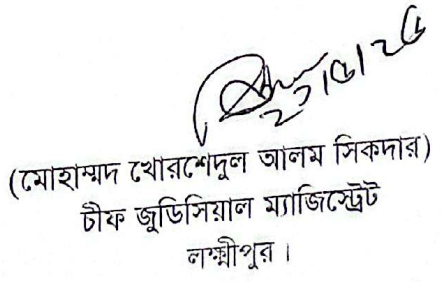 (মোহাম্মদ খোরশেদুল আলম সিকদার)
চীফ জুডিসিয়াল ম্যাজিস্ট্রেট
লক্ষ্মীপুর।